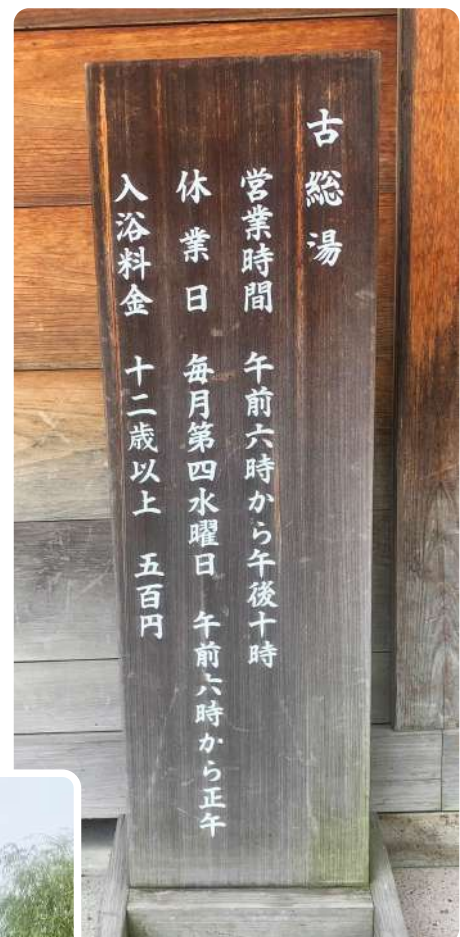 古総湯
営業時間 午前六時から午後十時
休業日 毎月第四水曜日 午前六時から正午
入浴料金 十二歳以上 五百円